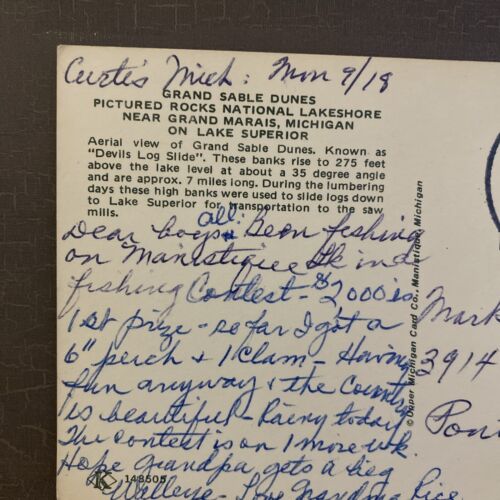 Curtis Mich: Mon 9/18
GRAND SABLE DUNES
PICTURED ROCKS NATIONAL LAKESHORE
NEAR GRAND MARAIS, MICHIGAN
ON LAKE SUPERIOR
Aerial view of Grand Sable Dunes. Known as
"Devils Log Slide". These banks rise to 275 feet
above the lake level at about a 35 degree angle
and are approx. 7 miles long. During the lumbering
days these high banks were used to slide logs down
to Lake Superior for transportation to the saw
mills.
Dear boys & all: Been fishing
on Manistique Lk in a
fishing Contest - $2000 is
1st prize - so far I got a
6" perch + 1 Clam - Having
fun anyway + the Country
is beautiful - Rainy today
The contest is on 1 more wk.
Hope Grandpa gets a big
Walleye - Love Grandma Rice
K 143505
© Upper Michigan Card Co., Manistique, Michigan
Mark
3914
Pont